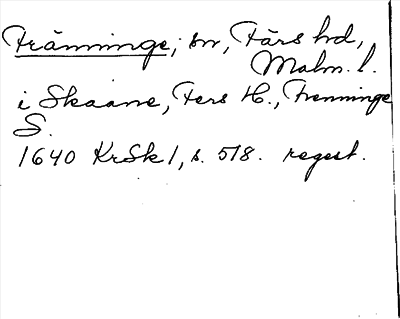 Främminge; sn, Färs hd,
Malm. l.
i Skaane, Fers H., Fremminge
S.
1640 KrSk 1, s. 518. regest.